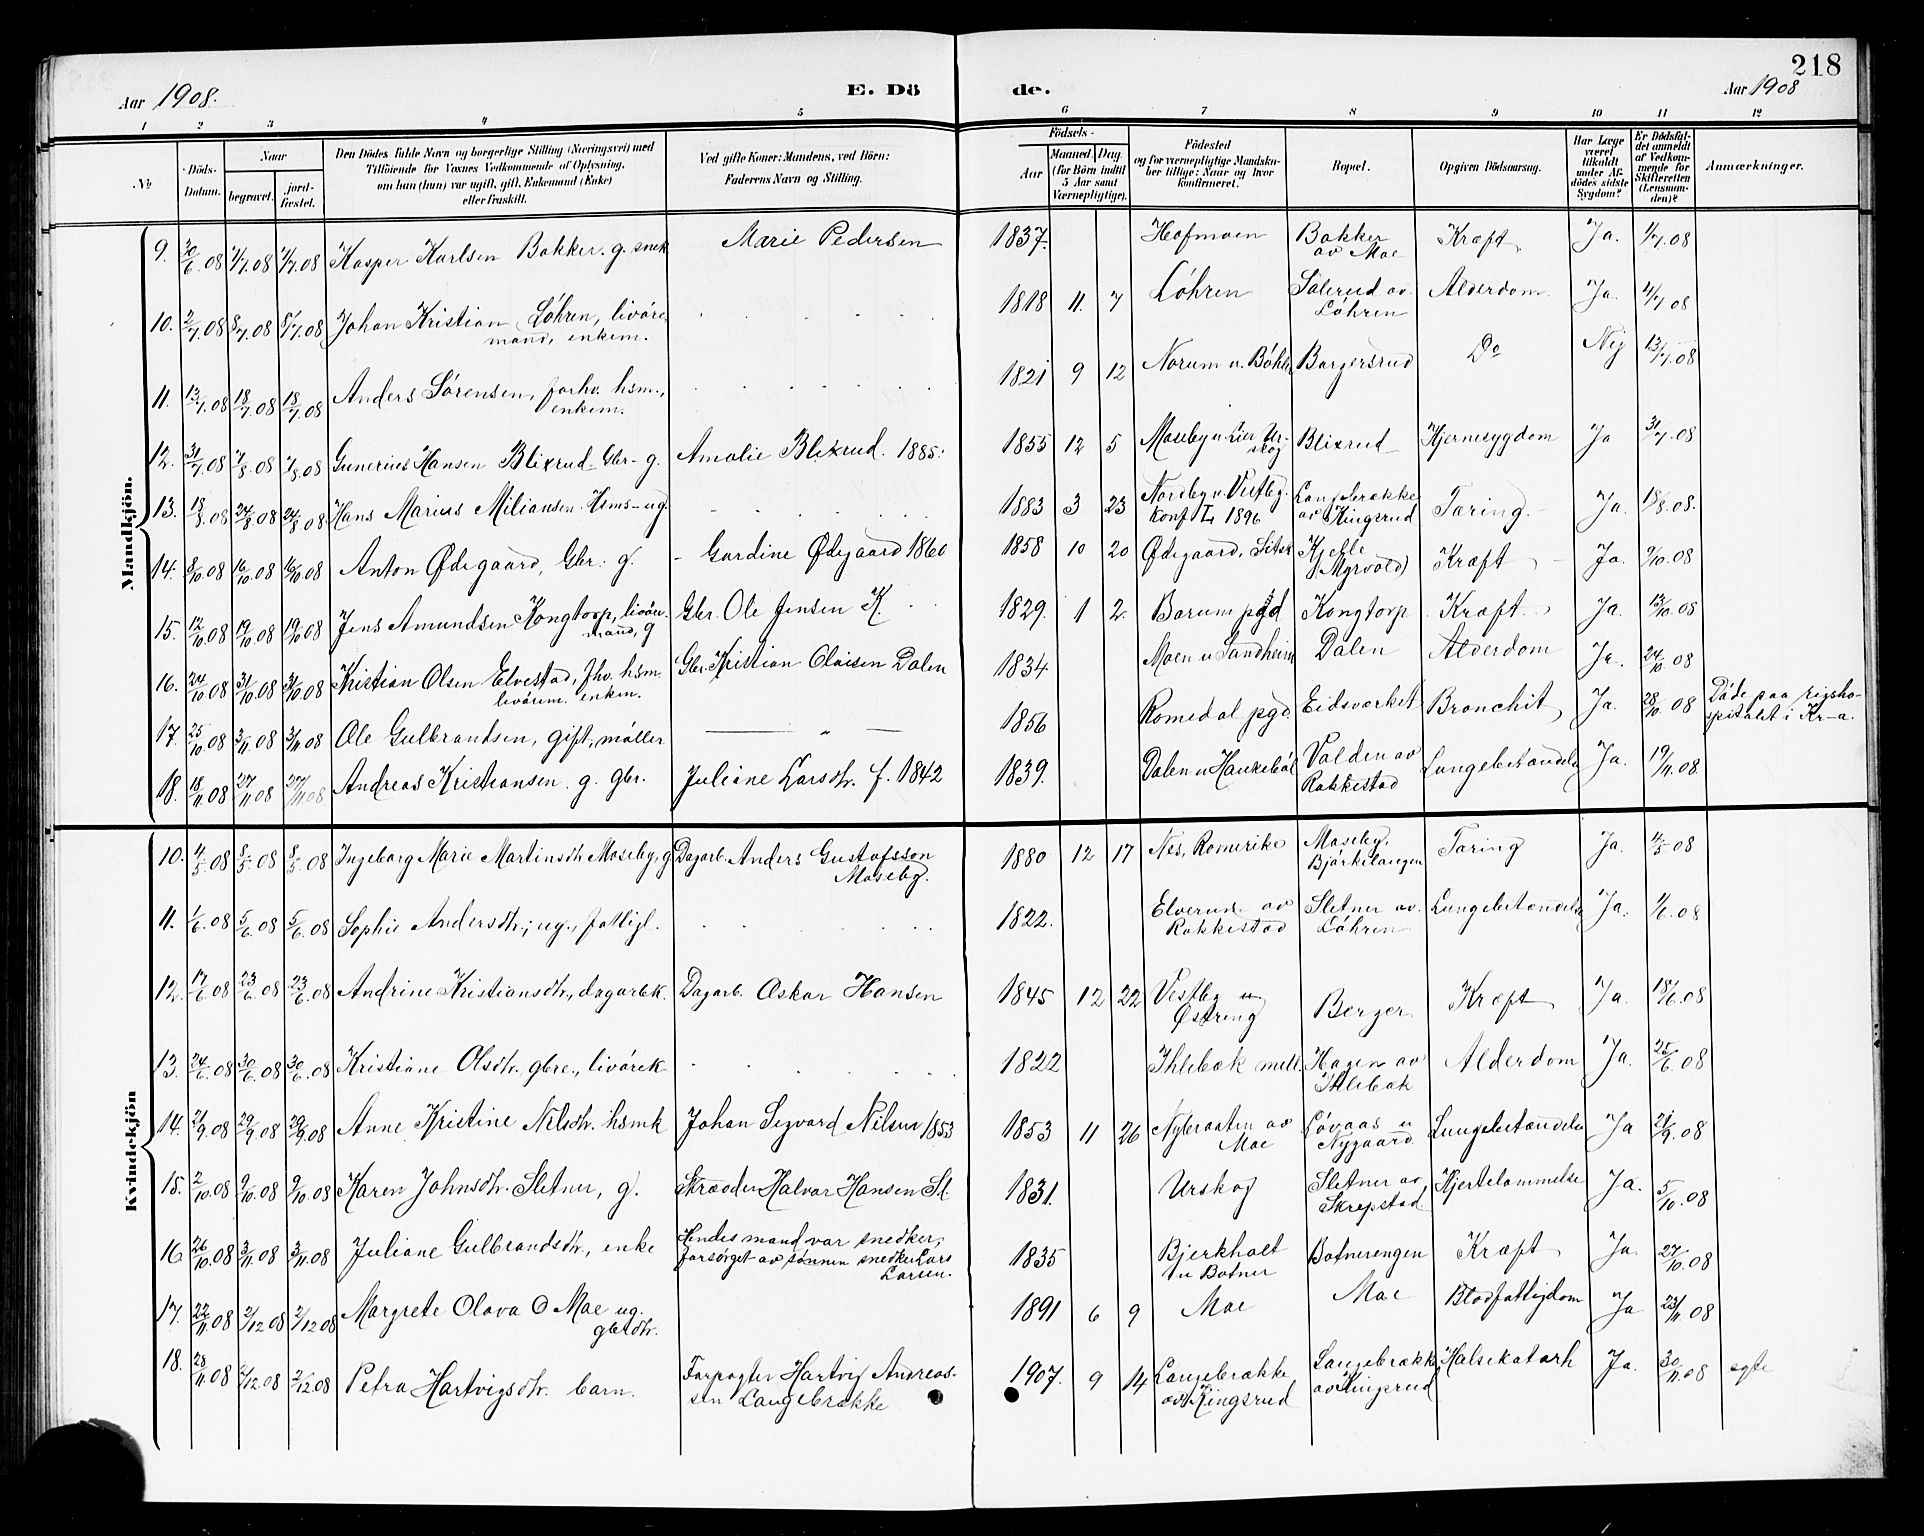 218
Aar 1908.
E. Dö
de.
Aar 1908
1 2 3 4 5 6 7 8 9 10 11 12
No
Döds-Datum.
Naar
begravet.
jordfæstet.
Den Dödes fulde Navn og borgerlige Stilling (Næringsvei) med
Tilföiende for Voxnes Vedkommende af Oplysning,
om han (hun) var ugift, gift, Enkemand (Enke)
eller fraskilt.
Ved gifte Koner: Mandens, ved Börn:
Faderens Navn og Stilling.
Födsels-
Aar
Maaned. Dag.
(for Börn indtil
5 Aar samt
Værnepligtige).
Födested
og for værnepligtige Mandskaber tillige: Naar og hvor
konfirmeret.
Bopæl.
Opgiven Dödsaarsag.
Har Læge
været
tilkaldt
under Afdödes sidste
Sygdom?
Er Dödsfaldet anmeldt
af Vedkommende for
Skifteretten
(Lensmanden)?
Anmærkninger.
Mandkjön.
9. 30/6 08 4/7.08 4/7.08 Kasper Karlsen Bakker. g. snek Marie Pedersen 1837. Hofmoen Bakker av Moe Kræft Ja. 1/7.08
10. 2/7.08 8/7.08 8/7.08 Johan Kristian Löhren, livöremand, enkem. 1818 11. 7 Löhren Sölerud av Löhren Alderdom. Ja. 4/7 08
11. 13/7.08 18/7.08 18/7.08 Anders Sörensen, forhv. hsm., enkem. 1821 9 12 Norum u. Böhler Borgersrud Do Nej 13/7.08
12. 31/7.08 7/8.08 7/8.08 Gunerius Hansen Blixrud Gbr. g. Amalie Blixrud. 1885. 1855 12 5 Moseby u. Lier Urskog Blixrud Hjernesygdom Ja 31/7.08
13. 18/8.08 24/8 08 24/8 08 Hans Marius Miliansen. Hsms-ug. 1883 3 23 Nordby u. Vestby. konf. L 1896 Langebrække av Kingsrud Tæring. Ja. 18/8.08.
14. 8/10 08 16/10 08 16/10 08 Anton Ødegaard, Gbr. g. Gardine Ødegaard 1860 1858 10 20 Ødegaard, Sitsk Kjelle (Myrvold) Kræft Ja. 9/10.08
15. 12/10 08 19/10 08 19/10 08 Jens Amundsen Kongtorp, livöremand, g Gbr. Ole Jensen K. 1829. 1 2. Borum pgd Kongtorp Kræft. Ja. 13/10.08
16. 24/10 08 31/10.08 31/10.08 Kristian Olsen Elvestad, fhv. hsm. livörem. enkem. Gbr. Kristian Olaisen Dalen 1834 Moen u Sandheim Dalen Alderdom Ja. 24/10 08
17. 25/10 08 3/11 08 3/11 08 Ole Gulbrandsen, gift, möller 1856 Romedal pgd. Eidsverket Bronchit Ja. 28/10. 08 Döde paa rigshospitalet i Kr-a.
18. 18/11 08 27/11 08 27/11 08 Andreas Kristiansen. g. gbr. Juliane Larsdtr. f. 1842 1839. Dalen u Haukeböl Valden av Rakkestad Lungebetændelse Ja. 19/11.08.
Kvindekjön
10. 4/5 08 8/5.08 8/5.08 Ingeborg Marie Martinsdtr Moseby, g Dagarb. Anders Gustafsson Moseby. 1880 12 17 Nes, Romerike Moseby, Björkelangen Tæring Ja. 4/5 08
11. 1/6.08 5/6 08 5/6.08 Sophie Andersdtr., ug., fattigl. 1822. Elverud av Rakkestad Sletner av Löhren Lungebetændelse Ja. 1/6.08
12. 17/6 08 23/6 08 23/6 08 Andrine Kristiansdtr., dagarbk. Dagarb. Oskar Hansen 1845 12 22 Vestby u Østring Berger Kræft Ja. 18/6.08
13. 24/6.08 30/6.08 30/6.08 Kristiane Olsdtr. gbre., livörek 1822 Ihlebæk mell. Hagen av Ihlebæk Alderdom Ja. 25/6.08
14. 21/9.08 29/9.08 29/9.08 Anne Kristine Nilsdtr. hsmk Johan Sigvard Nilsen 1853 1853 11 26 Nybraaten av Moe Lövaas u Nygaard Lungebetændelse Ja 21/9.08
15. 2/10.08 9/10.08 9/10.08 Karen Johnsdtr. Sletner, g. Skrædder Halvor Hansen Sl 1831. Urskog Sletner av Skrepstad Hjertelammelse Ja. 5/10.08
16 26/10 08 3/11 08 3/11 08 Juliane Gulbrandsdtr., enke Hendes mand var snedker, forsörget av sönnen snedker Lars Larsen. 1835 Bjerkholt u Botner Botnerengen Kræft Ja. 27/10.08
17. 22/11 08 2/12 08 2/12 08 Margrete Olava O Moe ug. gbrdtr. 1891 6 9 Moe Moe Blodfattigdom Ja 23/11 08
18. 28/11 08 2/12 08 2/12 08 Petra Hartvigsdtr. barn. Forpagter Hartvig Andreassen Langebrække 1907. 9 14 Langebrække av Kingsrud Langebrække av Kingsrud Halsekatarh Ja. 30/11.08 egte